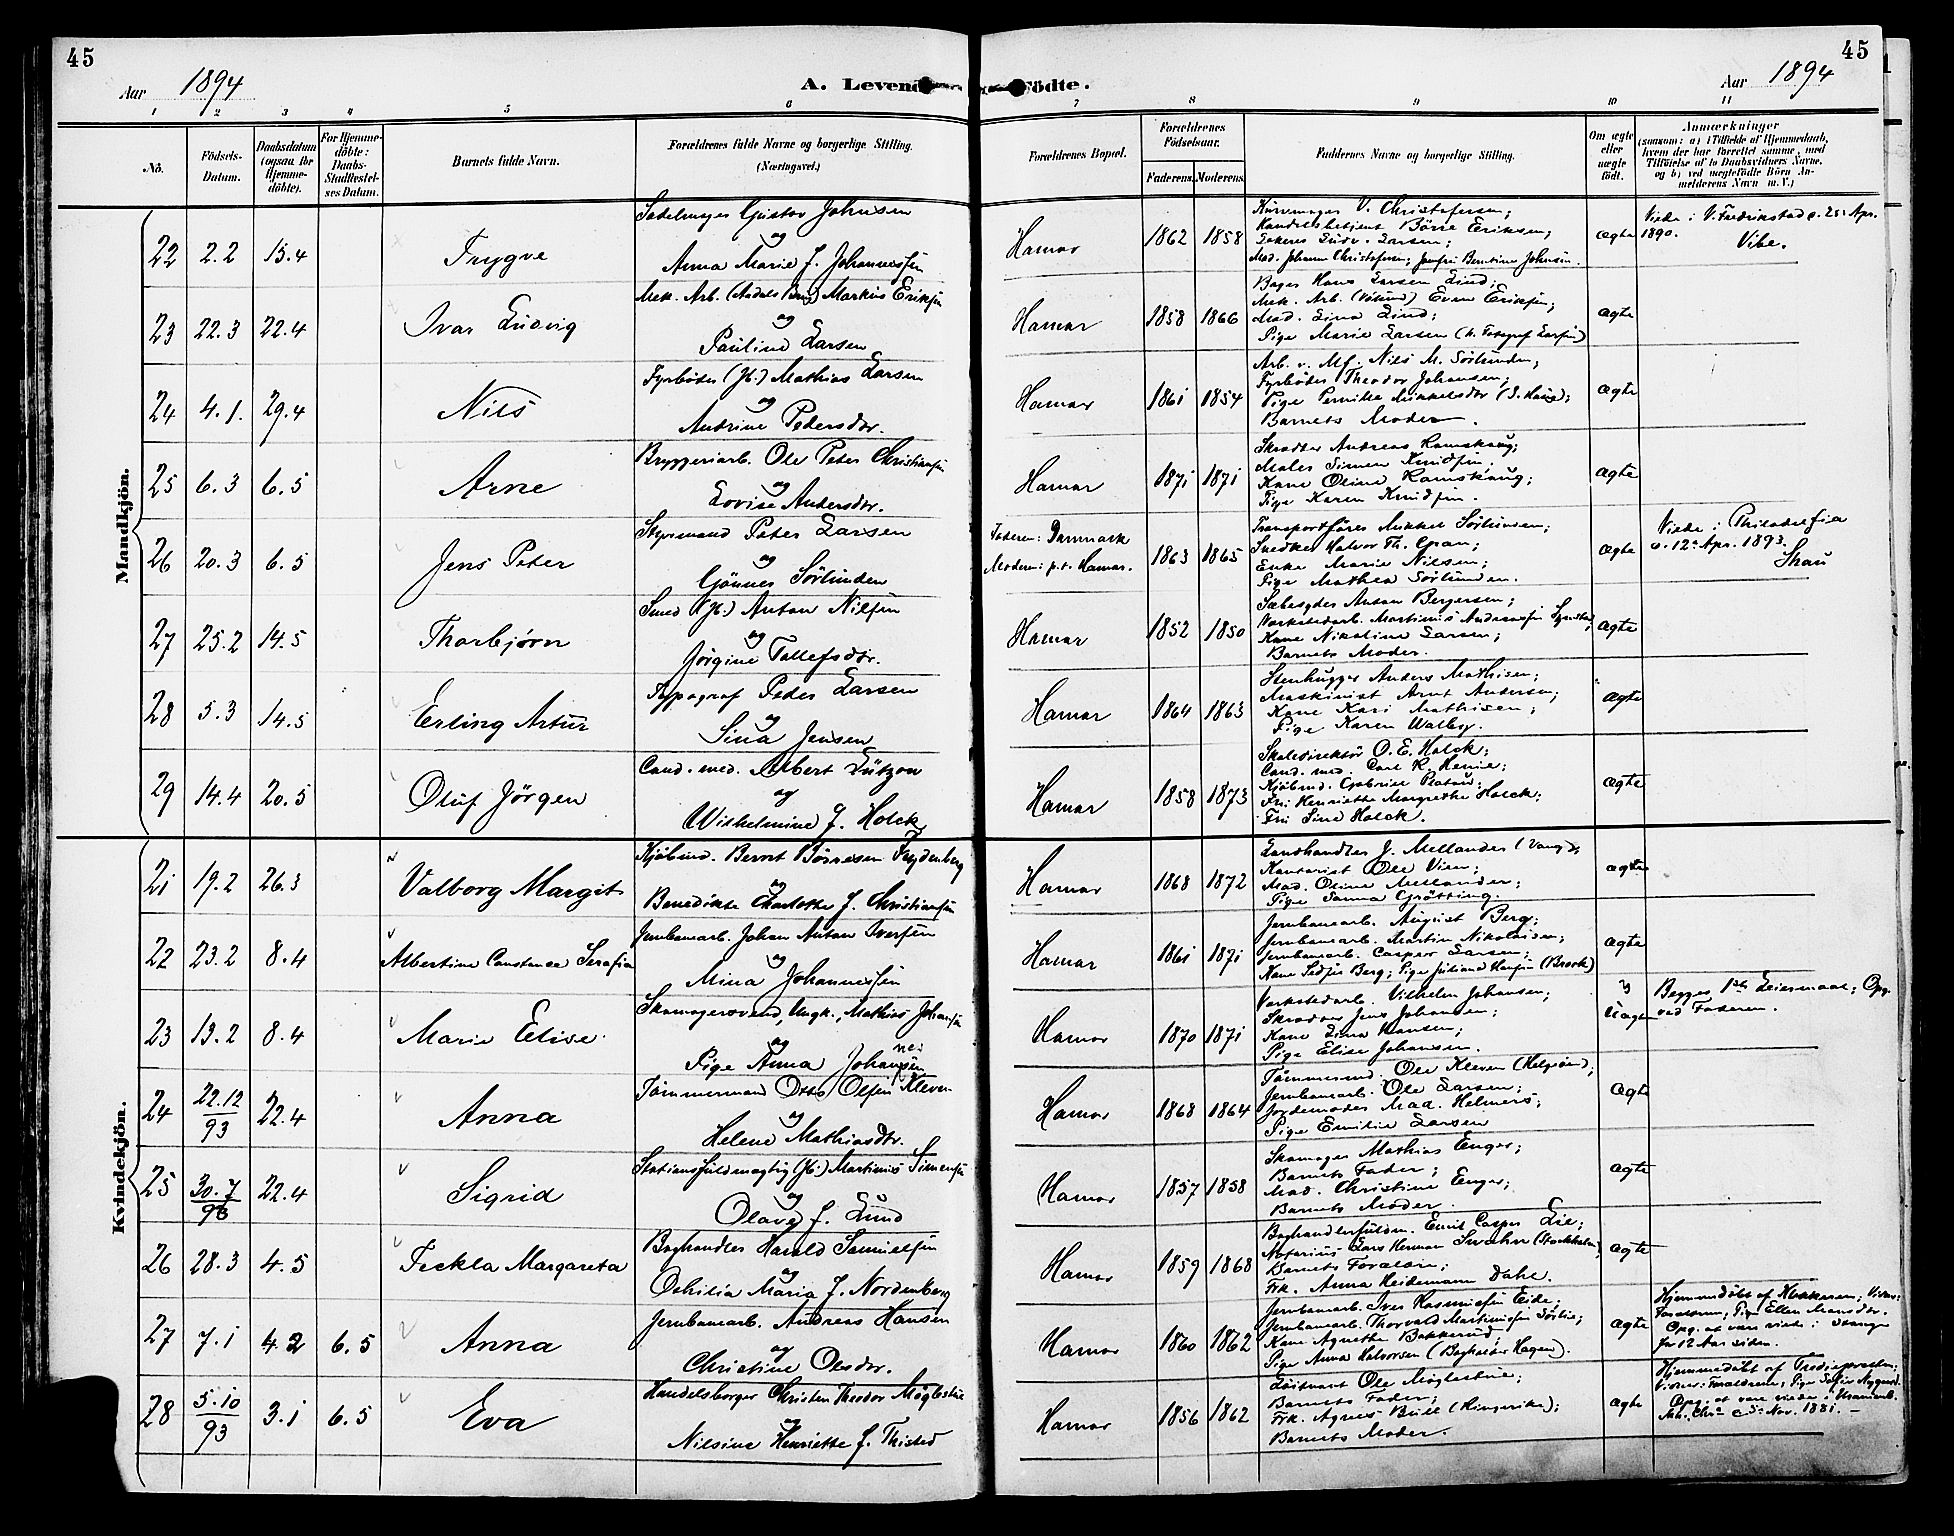 45
45
Aar 1894
A. Levende Födte.
Aar 1894
1 2 3 4 5 6 7 8 9 10 11
No.
Födsels-Datum.
Daabsdatum (ogsaa for Hjemme-döbte).
For Hjemme-döbte: Daabs-Stadfestel-ses Datum.
Barnets fulde Navn.
Forældrenes fulde Navne og borgerlige Stilling.
(Næringsvei.)
Forældrenes Bopæl.
Forældrenes Födselsaar.
Faderens. Moderens.
Faddernes Navne og borgerlige Stilling.
Om ægte eller uægte födt.
Anmærkninger
(saasom: a) i Tilfælde af Hjemmedaab, hvem der har forrettet samme, med Tilföielse af to Daabsvidners Navne, og b) ved uægtefödte Börn An-melderens Navn m. V.)
Mandkjön.
22 2.2 15.4 Trygve
Sadelmager Gustav Johnsen
og
Anna Marie f. Johannessen
Hamar 1862 1858
Kurvemager V. Christofersen;
Handelsbetjent Börre Eriksen;
Ludv. Larsen;
Mad. Johanne Christofersen; Jomfru Berntine Johnsen.
ægte
Viede i V. Fredrikstad d. 25 Apr.
1890.
Vibe.
23 22.3 22.4 Ivar Ludvig
Mek. Arb. (Aadals Brug) Markus Eriksen
og
Pauline Larsen
Hamar 1858 1866
Bager Hans Larsen Lind;
Mek. Arb. Even Eriksen;
Mad. Lina Lind;
Pige Marie Larsen (h. Fotograf Larsen)
ægte
24 4.1. 29.4 Nils
Fyrböder (Jb.) Mathias Larsen
og
Andrine Pedersdtr.
Hamar 1861 1854
Arb. v. Mf. Nils M. Sörlunden;
Fyrböder Theodor Johansen;
Pige Pernille Mikkelsdtr
Barnets Moder.
ægte
25 6.3 6.5 Arne
Bryggeriarb. Ole Peter Christiansen
og
Lovise Andersdtr.
Hamar 1871 1871
Skrædder Andreas Ramskaug;
Maler Simen Knudsen;
Kone Oline Ramskaug;
Pige Karen Knudsen.
ægte
26 20.3 6.5 Jens Peter
Styrmand Peter Larsen
og
Gönner Sörlunden
Faderen: Danmark
Moderen: p.t. Hamar.
1863 1865
Transportförer Mikkel Sörlunden;
Snedker Halvor Th. Gran;
Enke Marie Nilsen;
Pige Mathea Sörlunden.
ægte
Viede i Philadelfia
d. 12 Apr. 1893.
Skau
27 25.2 14.5 Thorbjørn
Smed (Jb.) Anton Nilsen
og
Jørgine Tollefsdtr.
Hamar 1852 1850
Sæbesyder Anton Bergersen;
Værkstedarb. Martinus Andreassen
Kone Nikoline Larsen;
Barnets Moder.
ægte
28 5.3 14.5 Erling Artur
Typograf Peder Larsen
og
Sina Jensen
Hamar 1864 1863
Stenhugger Anders Mathisen;
Maskinist Arnt Andersen;
Kone Kari Mathisen;
Pige Karen Walby.
ægte
29 14.4 20.5 Oluf Jørgen
Cand. med. Albert Lützow
og
Wilhelmine f. Holck
Hamar 1858 1873
Skoledirektör O. E. Holck;
Cand. med. Carl R. Henie;
Kjöbmd. Gabriel Platou;
Fru Henriette Margrethe Holck;
Frk. Sina Holck.
ægte
Kvindekjön.
21 19.2 26.3 Valborg Margit
Kjöbmd. Bernt Börresen Frydenberg
og
Benedikte Charlotte f. Christiansen
Hamar 1868 1872
Landhandler J. Mellander (Vang);
Kontorist Ole Vien;
Mad. Oline Mellander;
Pige Sanna Gröttting.
ægte
22 23.2 8.4 Albertine Constance Serafia
Jernbanearb. Johan Anton Iversen
og
Mina Johannessen
Hamar 1861 1871
Jernbanearb. August Berg;
Jernbanearb. Martin Nikolaisen;
Jernbanearb. Casper Larsen;
Kone Berg; Pige Juliane Hansen (Brock)
ægte
23 13.2 8.4 Marie Elise
Skomagersvend, Ungk., Mathias Johansen
og
Pige Anna Johannesen
Hamar 1870 1871
Værkstedarb. Vilhelm Johansen;
Skrædder Jens Johansen;
Kone Lina Hansen;
Pige Elise Johansen.
Uægte
Begges 1ste Leiermaal; Opg.
ved Faderen.
24 22.12/93 22.4 Anna
Tømmermand Otto Olsen Kleven
og
Helene Mathiasdtr.
Hamar 1868 1864
Tømmermd. Ole Kleven (Helgøen);
Jernbanearb. Ole Larsen;
Jordemoder Mad. Helmers;
Pige Emilie Larsen
ægte
25 30.7/93 22.4 Sigrid
Stationsfuldmægtig (Jb.) Martinius Simensen
og
Olava f. Lund
Hamar 1857 1858
Skomager Mathias Enger;
Barnets Fader;
Mad. Christine Enger;
Barnets Moder.
ægte
26 28.3 4.5 Teckla Margareta
Boghandler Harald Samuelsen
og
Othilia Maria f. Nordenberg
Hamar 1859 1868
Boghandlerfuldm. Emil Casper Lie;
Notarius Lars Herman Swahn (Stockholm)
Barnets Forældre;
Frk. Anna Heidemann Dahl.
ægte
27 7.1 4.2 6.5 Anna
Jernbanearb. Andreas Hansen
og
Christine Olsdtr.
Hamar 1860 1862
Jernbanearb. Iver Rasmussen Eide;
Jernbanearb. Thorvald Martinusen Sørlie;
Kone Agnethe Bakkerud;
Pige Anna Halvorsen (Baghuset Hagen).
ægte
Hjemmedøbt af Klokkeren; Vidner:
Forældrene, Pige Ellen Monsdtr.
Opg. at være viede i Stange
for 12 Aar siden.
28 5.10/93 3.1 6.5 Eva
Handelsborger Christen Theodor Møglestue
og
Nilsine Henriette f. Thisted
Hamar 1856 1862
Løitnant Ole Møglestue;
Barnets Fader;
Frk. Agnes Bull (Ringerike);
Barnets Moder.
ægte
Hjemmedøbt af Stedspresten;
Vidner: Forældrene, Pige Sofie Nygaard.
Opg. at være viede i
Nov. 1881.